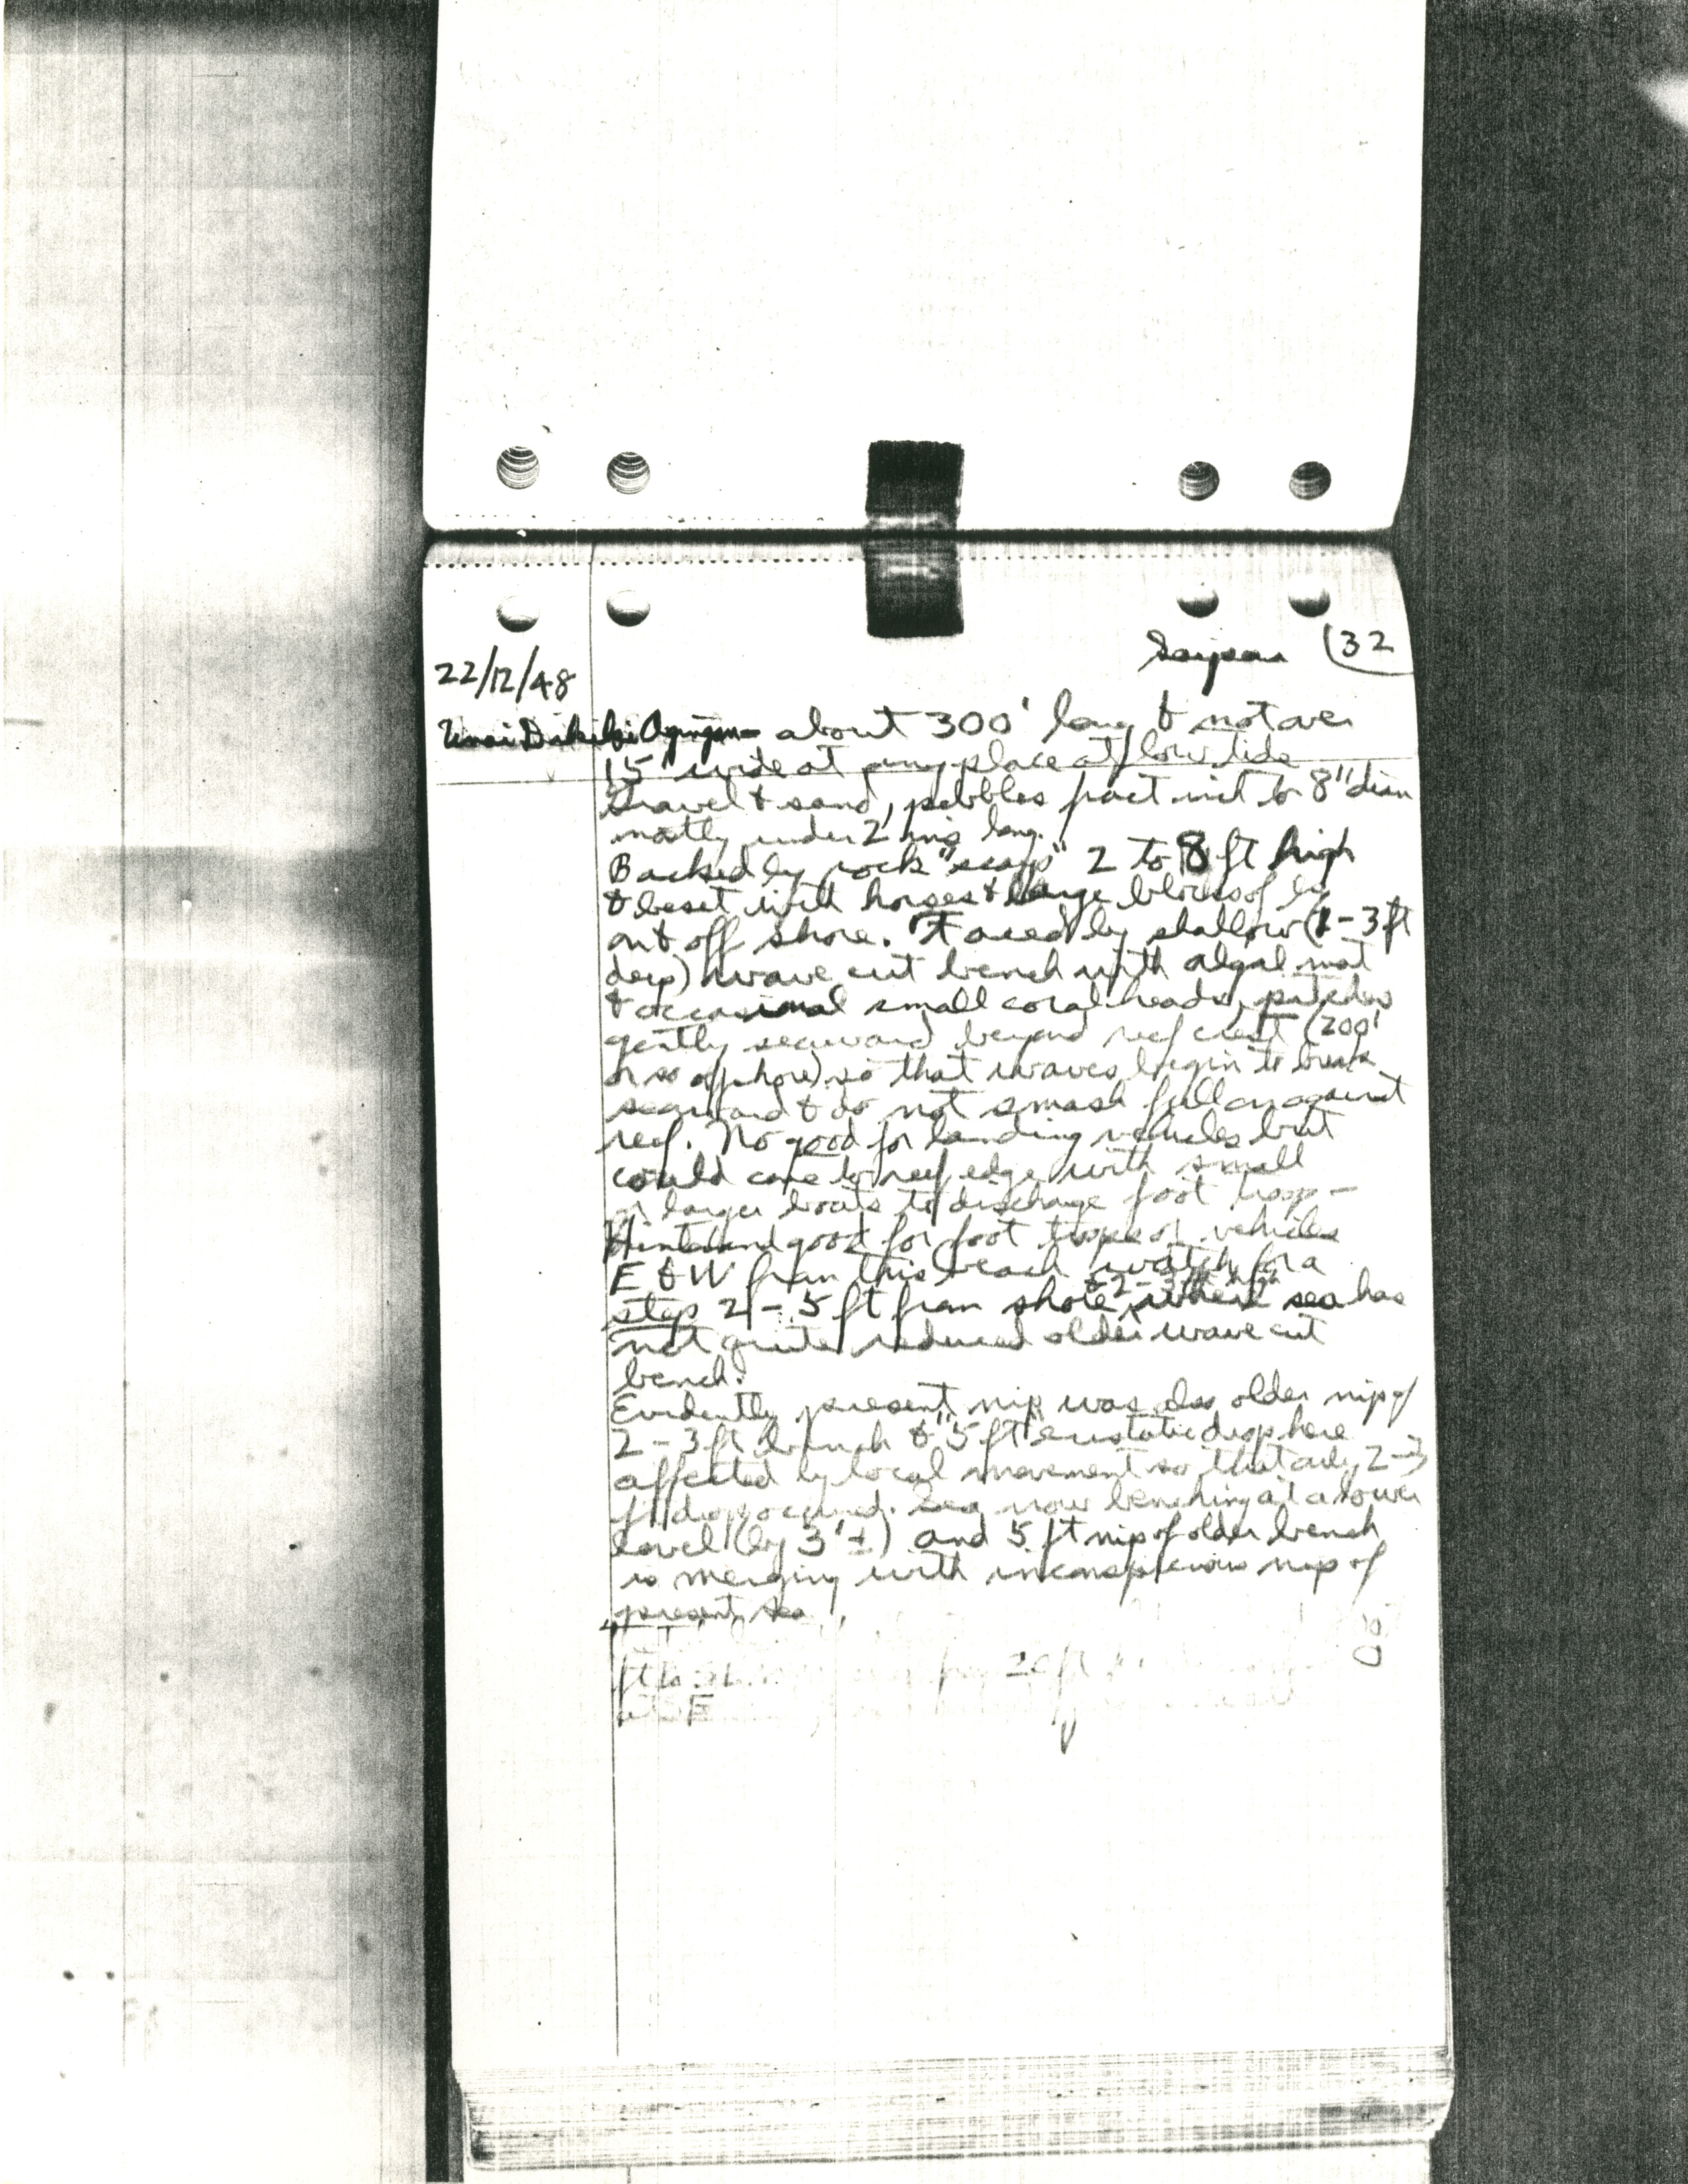 Saipan (32
22/12/48
Unai Dikiki Agingan - about 300' long & not over
15' wide at any place at low tide
Gravel & sand, pebbles to 8" diam
mostly under 2 ins long.
Backed by rock "scarp" 2 to 8 ft high
& beset with horses & large blocks of ls
on & off shore. Faced by shallow (1-3 ft
deep) wave cut bench with algal mat
& occasional small coral heads,
gently seaward beyond reef crest (200'
or so offshore) so that waves begin to break
seaward & do not smash full on against
reef. No good for landing vehicles but
could come to reef edge with small
or larger boats to discharge foot troop-
Hinterland good for foot troops or vehicles
E & W from this beach watch for a
step 2-5 ft from shore & 2-3 ft high where sea has
not quite reduced older wave cut
bench.
Evidently present nip was also older nip of
2-3 ft bench & "5 ft" eustatic drop here
affected by local movement so that only 2-3
ft drop occurred. Sea now benching at a lower
level (by 3'±) and 5 ft nip of older bench
is merging with inconspicuous nip of
present sea
20 ft